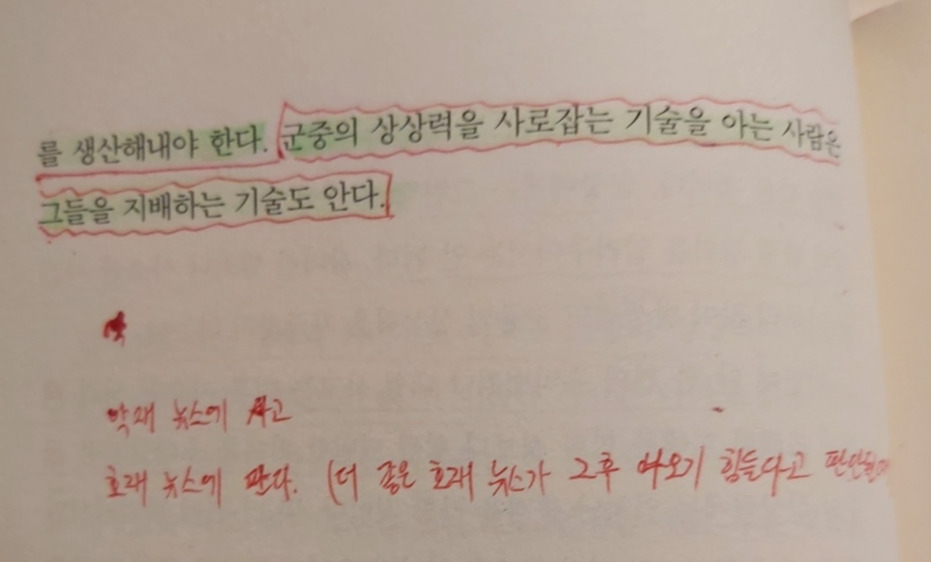 를 생산해내야 한다. 군중의 상상력을 사로잡는 기술을 아는 사람은
그들을 지배하는 기술도 안다.
악재 뉴스에 사고
호재 뉴스에 판다. (더 좋은 호재 뉴스가 그후 나오기 힘들다고